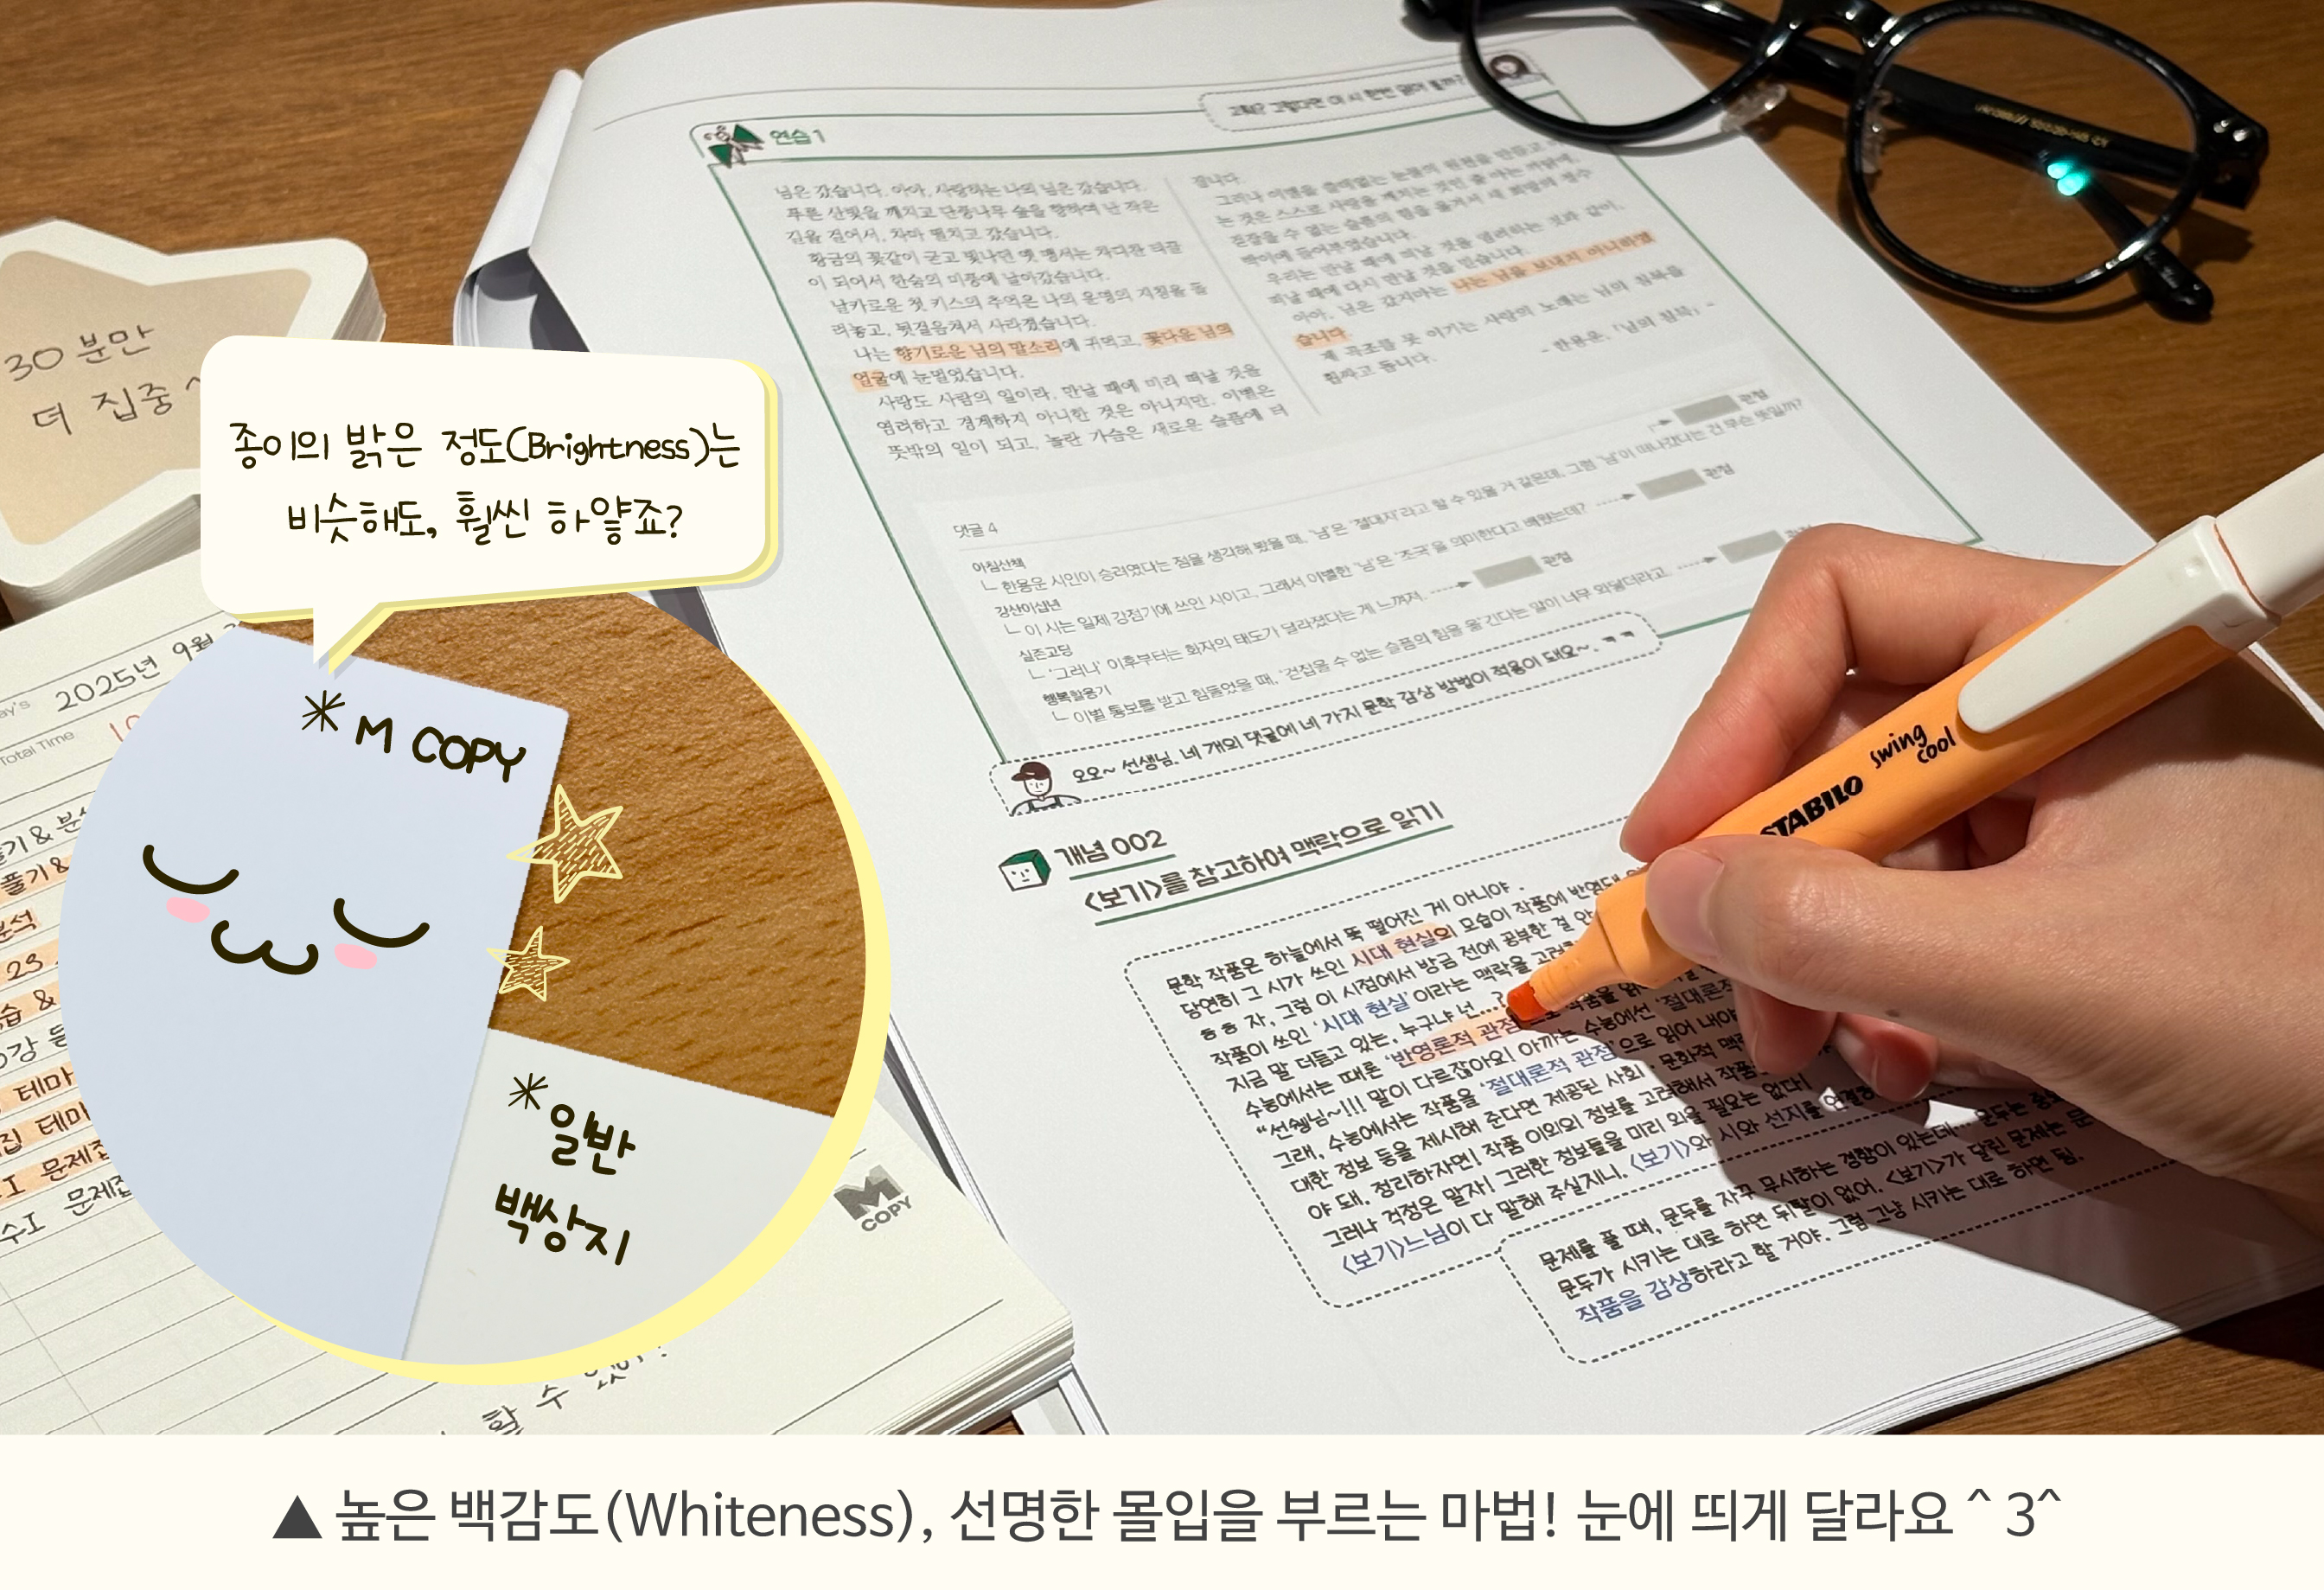 고뤠? 그렇다면 이 시 한번 읽어 볼까?
연습 1
님은 갔습니다. 아아, 사랑하는 나의 님은 갔습니다.
푸른 산빛을 깨치고 단풍나무 숲을 향하여 난 작은
길을 걸어서, 차마 떨치고 갔습니다.
황금의 꽃같이 굳고 빛나던 옛 맹서는 차디찬 티끌
이 되어서 한숨의 미풍에 날아갔습니다.
날카로운 첫 키스의 추억은 나의 운명의 지침을 돌
려놓고, 뒷걸음쳐서 사라졌습니다.
나는 향기로운 님의 말소리에 귀먹고, 꽃다운 님의
얼굴에 눈멀었습니다.
사랑도 사람의 일이라, 만날 때에 미리 떠날 것을
염려하고 경계하지 아니한 것은 아니지만, 이별은
뜻밖의 일이 되고, 놀란 가슴은 새로운 슬픔에 터
집니다.
그러나 이별을 쓸데없는 눈물의 원천을 만들고
는 것은 스스로 사랑을 깨치는 것인 줄 아는 까닭에,
걷잡을 수 없는 슬픔의 힘을 옮겨서 새 희망의 정수
박이에 들어부었습니다.
우리는 만날 때에 떠날 것을 염려하는 것과 같이,
떠날 때에 다시 만날 것을 믿습니다.
아아, 님은 갔지마는 나는 님을 보내지 아니하였
습니다.
제 곡조를 못 이기는 사랑의 노래는 님의 침묵을
휩싸고 돕니다.
- 한용운, 「님의 침묵」 -
30 분만
더 집중~
종이의 밝은 정도(Brightness)는
비슷해도, 훨씬 하얗죠?
댓글 4
아침산책
ㄴ 한용운 시인이 승려였다는 점을 생각해 봤을 때, '님'은 '절대자'라고 할 수 있을 거 같은데, 그럼 '님'이 떠나갔다는 건 무슨 뜻일까? 관점
강산이삼년
ㄴ 이 시는 일제 강점기에 쓰인 시이고, 그래서 이별한 '님'은 '조국'을 의미한다고 배웠는데? 관점
실존고딩
ㄴ '그러나' 이후부터는 화자의 태도가 달라졌다는 게 느껴져. 관점
행복할용기
ㄴ 이별 통보를 받고 힘들었을 때, '걷잡을 수 없는 슬픔의 힘을 옮'긴다는 말이 너무 와닿더라고. 관점
오오~ 선생님. 네 개의 댓글에 네 가지 문학 감상 방법이 적용이 돼요~. ㅋㅋ
개념 002
<보기>를 참고하여 맥락으로 읽기
문학 작품은 하늘에서 뚝 떨어진 게 아니야.
당연히 그 시가 쓰인 시대 현실의 모습이 작품에 반영돼
흠흠 자, 그럼 이 시점에서 방금 전에 공부한 걸
작품이 쓰인 '시대 현실'이라는 맥락을
지금 말 더듬고 있는, 누구냐 넌...?
수능에서는 때론 '반영론적 관점'으로 작품을
"선쉥님~!!! 말이 다르잖아요! 아까는 수능에선 '절대론적
그래, 수능에서는 작품을 '절대론적 관점'으로 읽어 내야
대한 정보 등을 제시해 준다면 제공된 사회·문화적
야 돼. 정리하자면! 작품 이외의 정보를 고려해서
그러나 걱정은 말자! 그러한 정보들을 미리 외울 필요는 없다!
<보기>느님이 다 말해 주실지니, <보기>와 시와 선지를
문제를 풀 때, 문두를 자꾸 무시하는 경향이 있는데... 문두는
문두가 시키는 대로 하면 뒤탈이 없어. <보기>가 달린 문제는
작품을 감상하라고 할 거야. 그럼 그냥 시키는 대로 하면 됨.
STABILO swing cool
2025년 9월
Total Time
*M COPY
*일반
백상지
M COPY
▲ 높은 백감도(Whiteness), 선명한 몰입을 부르는 마법! 눈에 띄게 달라요 ^3^